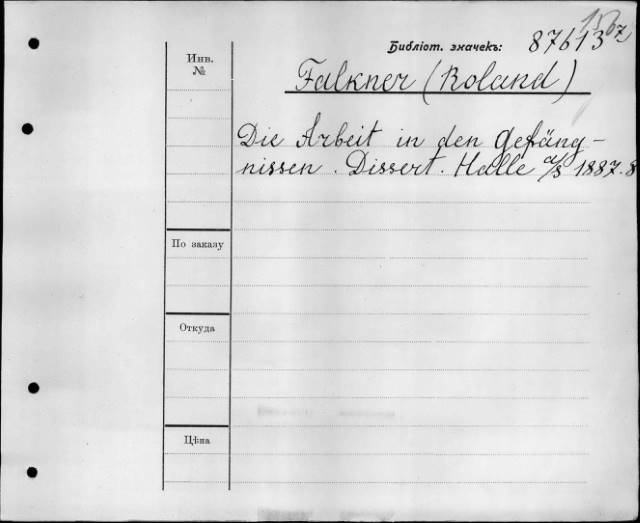 Библіот. значекъ: 87613
Инв.
№
Falkner (Roland)
Die Arbeit in den Gefäng-
nissen. Dissert. Halle a/s 1887. 8
По заказу
Откуда
Цѣна